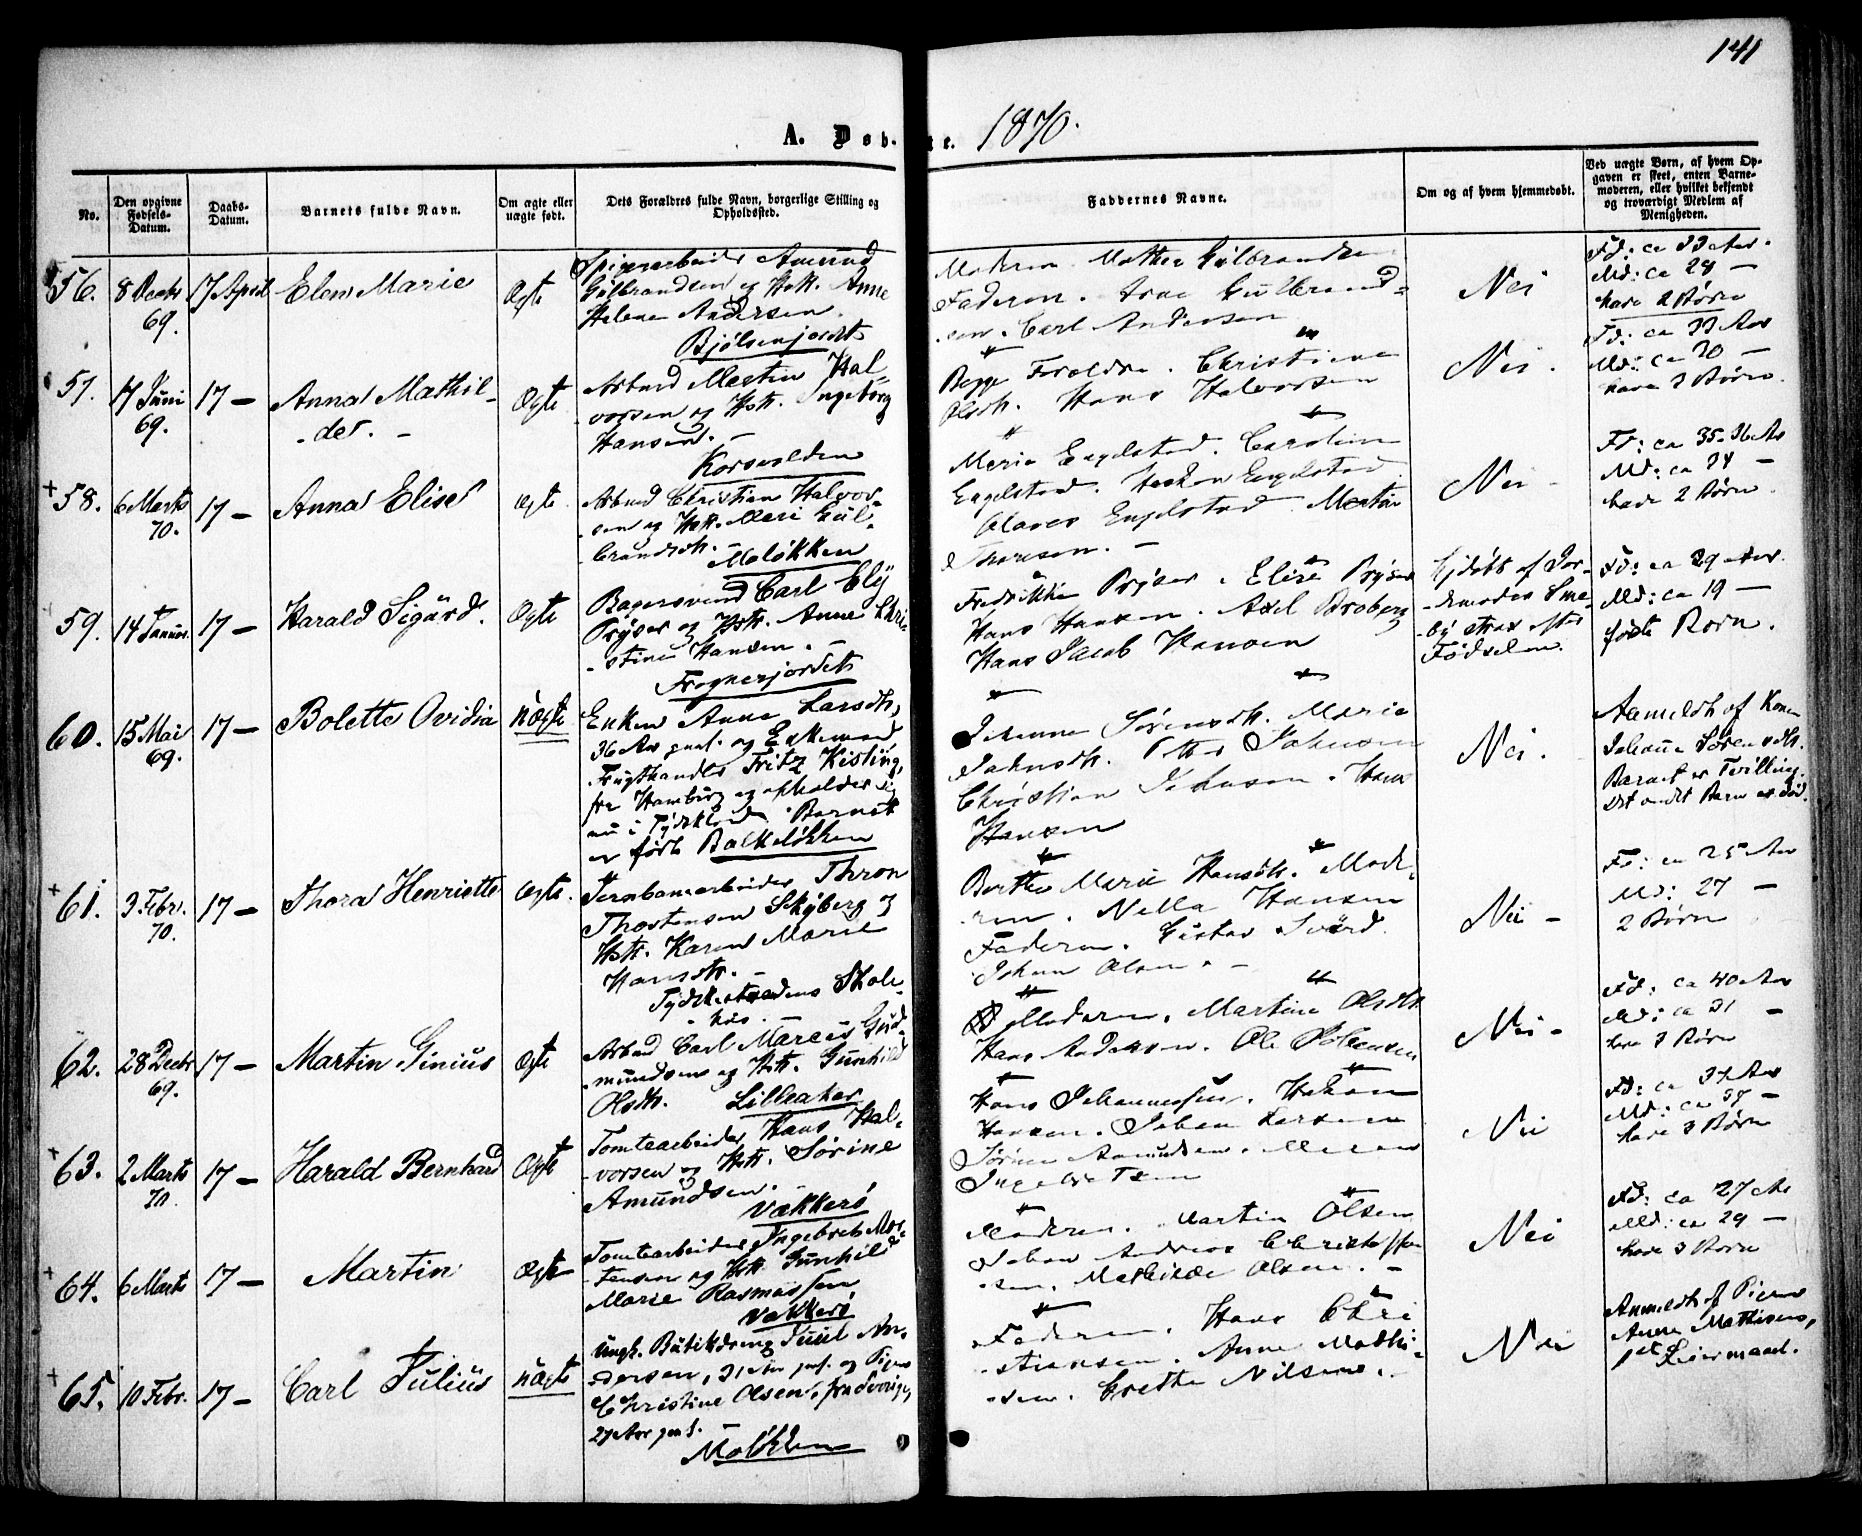 141
A. Døb- te. 1870.
No.
Den opgivne Fødsels-Datum.
Daabs-Datum.
Barnets fulde Navn.
Om ægte eller uægte født.
Dets Forældres fulde Navn, borgerlige Stilling og Opholdssted.
Faddernes Navne.
Om og af hvem hjemmedøbt.
Ved uægte Børn, af hvem Opgaven er skeet, enten Barnemoderen, eller hvilket bekjendt og troværdigt Medlem af Menigheden.
56. 8 Decbr 69. 17 April Elen Marie Ægte
Spigerarbeider Amund
Gulbrandsen og Hstr. Anne
Helene Andersen.
Bjølsenjordet
Moderen. Mathea Gulbrandsen
Faderen. Gulbrand-
sen. Carl Andersen
Nei
Fd: ca 33 Aar.
Md: ca 28 —
have 2 Børn
57. 17 Juni 69. 17 — Anna Mathil-
de. — Ægte
Arbmd Martin Hal-
vorsen og Hstr. Ingeborg
Hansen. —
Korsvolden
Begge Forældre. Christiane
Olsdtr. Hans Halvorsen
Nei.
Fd: ca 33 Aar
Md: ca 30 —
have 3 Børn.
+ 58. 6 Marts 70. 17 — Anna Elise Ægte
Arbmd Christian Halvor-
sen og Hstr. Mari Gul-
brandsdtr.
Meløkken
Marie Engelstad. Caroline
Engelstad. Haakon Engelstad
Olaves Engelstad. Martin
Thoresen. —
Nei —
Fd: ca 35-36 Aar
Md: ca 34 —
have 2 Børn.
59. 14 Januar. 17 — Harald Sigurd. Ægte
Bagersvend Carl Ely
Prÿser og Hstr. Anne Chri-
stine Hansen.
Frognerjordet
Fredrikke Prÿser. Elise Prÿser
Hans Hansen. Axel Broberg
Hans Jacob Hansen
Hjdøbt af Jor-
demoder Sme-
by strax efter
Fødselen.
Fd: ca 29 Aar.
Md: ca 19 —
første Barn.
60. 15 Mai 69. 17 — Bolette Ovidia Uægte
Enken Anne Larsdtr,
36 Aar gml. og Enkemand
Frugthandler Fritz Kisling,
fra Hamburg og opholder sig
nu i Tÿdskland. Barnet
er født Balkeløkken
Johanne Sørensdtr. Marie
Johnsdtr. Petter Johnsen
Christian Johnsen. Hans
Hansen
Nei.
Anmeldt af Konen
Johanne Sørensdtr.
Barnet er Tvilling.
Det andet Barn er død.
+ 61. 3 Febr. 70. 17 — Thora Henriette Ægte.
Jernbanearbeider Thron
Thorstensen Skÿberg og
Hstr. Karen Marie
Hansdtr. —
Tÿdskestrædens Skole-
hus.
Berthe Marie Hansdtr. Mode-
ren. Nella Hansen
Faderen. Gustav Svärd.
Johan Olsen. —
Nei —
Fd: ca 25 Aar
Md: 27 —
2 Børn
62. 28 Decbr 69. 17 — Martin Ginius Ægte
Arbmd Carl Marcus Gud-
mundsen og Hstr. Gunhild
Olsdtr. Lilleaker
Moderen. Martine Olsdtr
Hans Andersen. Ole
Nei —
Fd: ca 40 Aar
Md: ca 31 —
have 3 Børn
+ 63. 2 Marts 70. 17 — Harald Bernhard Ægte
Tomtearbeider Hans Hal-
vorsen og Hstr. Sørine
Amundsen.
Vækkerø
Hans Johannessen. Hakon
Hansen. Johan Larsen
Sørine Amundsen. Maren
Ingebretsen
Nei
Fd: ca 37 Aar
Md: ca 38 —
have 3 Børn
+ 64. 6 Marts 17 — Martin Ægte
Tomtearbeider Ingebret Mor-
tensen og Hstr. Gunhild
Marie Rasmussen
Vækkerø
Moderen. Martin Olsen
Johan Andreas Christoffer-
sen. Mathilde Olsen. —
Nei
Fd: ca 27 Aar
Md: ca 29 —
have 3 Børn
+ 65. 10 Febr. 17 — Carl Julius Uægte
Ungk. Butikdreng Juul An-
dersen, 21 Aar gml. og Pigen
Christine Olsen, fra Sverige,
27 Aar gml.
Møløkken
Faderen. Hans Chri
stiansen. Anne Mathi-
sen. Grethe Nilsen.
Nei
Anmeldt af Pigen
Anne Mathisen,
1ste Leiermaal.